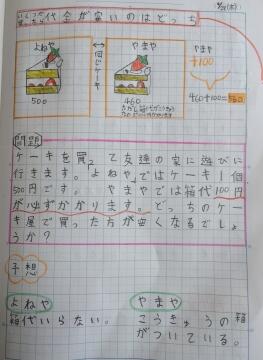 代金が安いのはどっち
よねや
500
同じケーキ
やまや
460
やまや
+100
460+100=560
問題
ケーキを買って友達の家に遊びに
行きます。よねやではケーキ1個
500円です。やまやでは箱代100円
が必ずかかります。どっちのケー
キ屋で買った方が安くなるでしょ
うか?
予想
よねや
箱代いらない。
やまや
こうきゅうの箱
がついている。